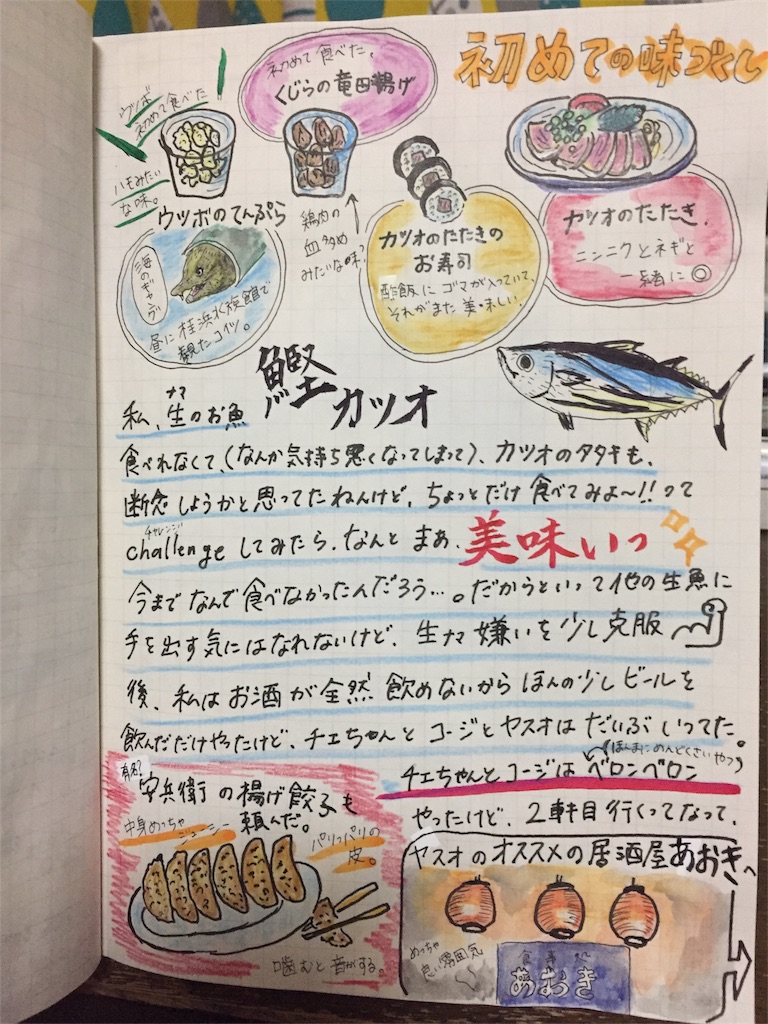 初めての味づくし
ウツボ
初めて食べた!
ハモみたい
な味。
ウツボのてんぷら
海のギャング
昼に桂浜水族館で
観たコイツ。
初めて食べた、
くじらの竜田揚げ
鶏肉の
血多め
みたいな味?
カツオのたたきの
お寿司
酢飯にゴマが入っていて、
それがまた美味しい。
カツオのたたき。
ニンニクとネギと
一緒に◎
鰹 カツオ
ナマ
私、生のお魚
食べれなくて、(なんか気持ち悪くなってしまって)、カツオのタタキも、
断念しようかと思ってたねんけど、ちょっとだけ食べてみよ〜!!って
チャレンジ
challengeしてみたら、なんとまあ、美味いっ
今までなんで食べなかったんだろう…。だからといって他の生魚に
手を出す気にはなれないけど、生ナマ嫌いを少し克服
後、私はお酒が全然飲めないからほんの少しビールを
飲んだだけやったけど、チエちゃんとコージとヤスオはだいぶいってた。
ほんまにめんどくさいやつ
チエちゃんとコージはベロンベロン
やったけど、2軒目行くってなって、
ヤスオのオススメの居酒屋あおきへ
めっちゃ
良い雰囲気
食事処
あおき
有名?
安兵衛の揚げ餃子も
頼んだ。
中身めっちゃ
ジューシー
パリッパリの
皮。
噛むと音がする。